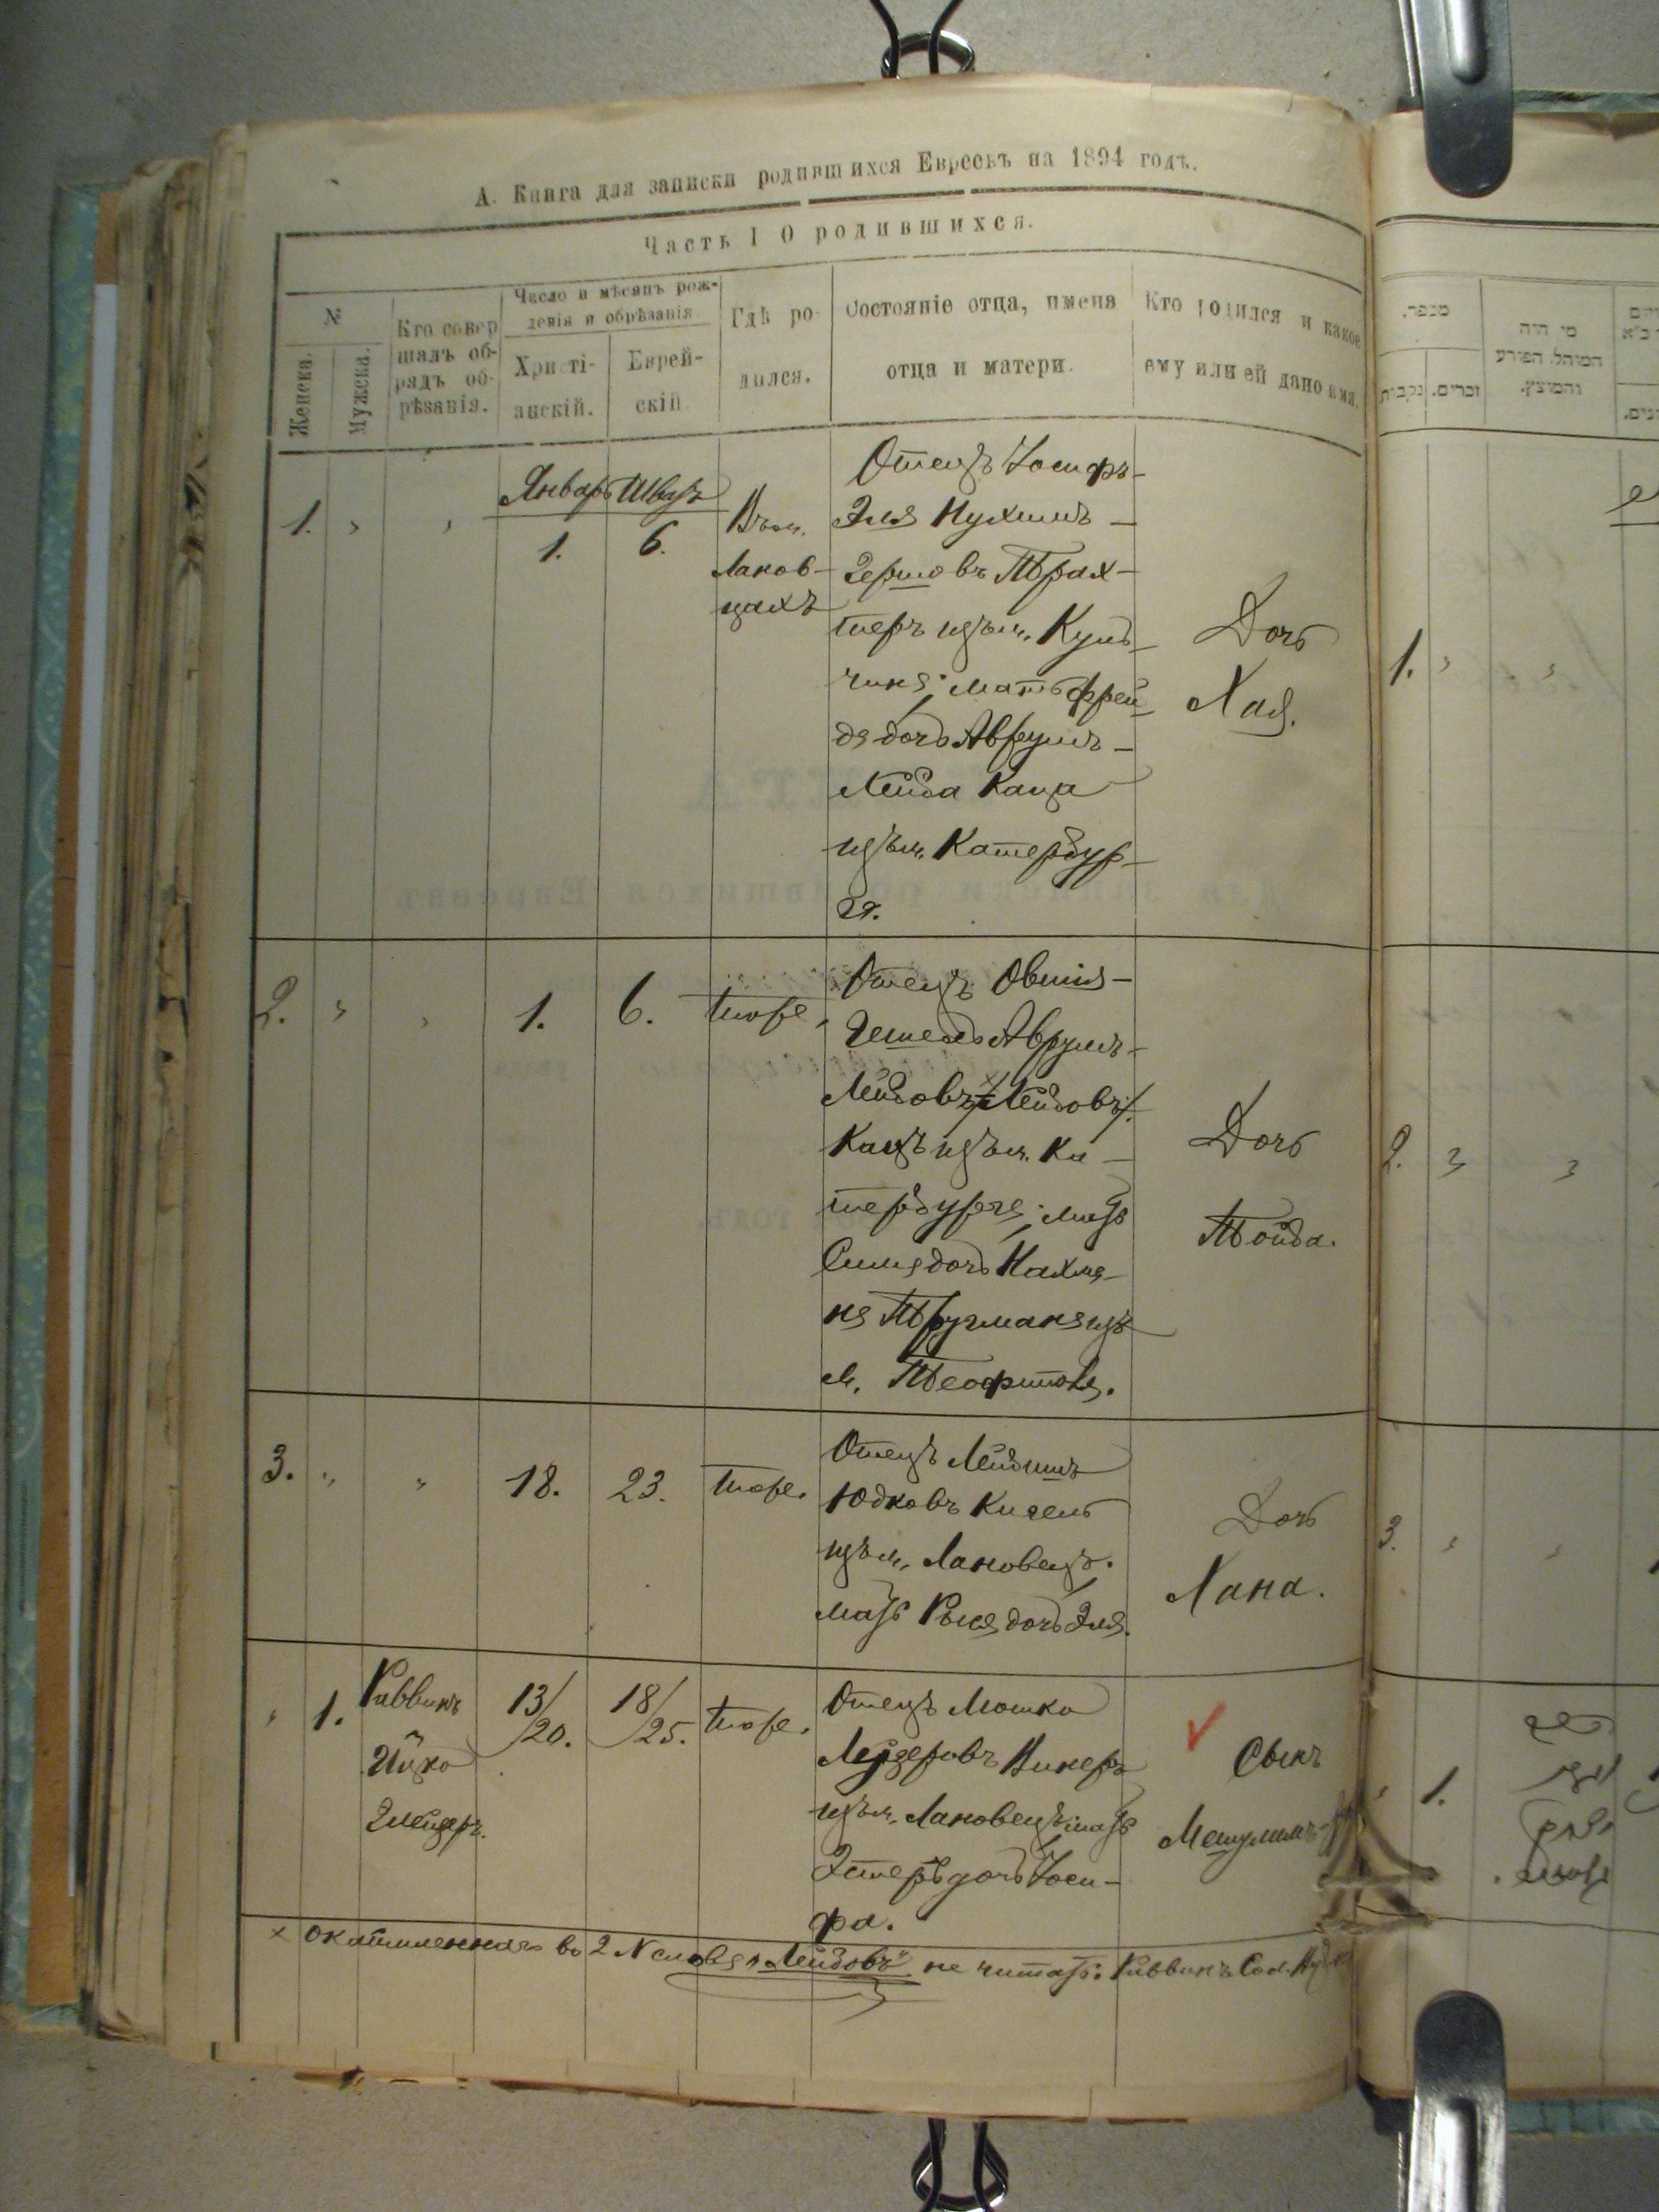 А. Книга для записки родившихся Евреевъ на 1894 годъ.
Часть I О родившихся.
№
Женска.
Мужска.
Кто совер
шалъ об-
рядъ об-
рѣзанія.
Число и мѣсяцъ рож-
денія и обрѣзанія.
Христі-
анскій.
Еврей-
скій
Гдѣ ро-
дился.
Состояніе отца, имена
отца и матери.
Кто родился и какое
ему или ей дано имя.
1. " "
Январь Шватъ
1. 6.
Въ м.
Ланов-
цахъ
Отецъ Іосифъ-
Эля Нухимъ-
Гершовъ Трах-
теръ изъ м. Куль-
чина; мать Фрей-
да дочь Аврумъ-
Лейба Каца
изъ м. Катербур-
га.
Дочь
Хая.
2. " "
1. 6.
тоже.
Отецъ Овшія-
Гешель Аврумъ-
Лейбовъ Лейбовъ
Кацъ изъ м. Ка-
тербурга; мать
Сима дочь Нахма-
на изъ
м. Теофиполя.
Дочь
Тойба.
3. " "
18. 23.
тоже.
Отецъ Лейбишъ
Юдковъ Кигель
изъ м. Лановецъ.
мать дочь Эля.
Дочь
Хана.
" 1.
Раввинъ
Ицко
13/20. 18/25.
тоже.
Отецъ Мошко
Лейзеровъ Винеръ
изъ м. Лановецъ мать
Эстеръ дочь Іоси-
фа.
Сынъ
Мешулимъ-
× въ 2 № слова „Лейбовъ" не читать: Раввинъ
מספר.
נקבות
זכרים.
מי היה
המוהל, הפורע
והמוצץ.
1. " "
2. " "
3. " "
" 1.